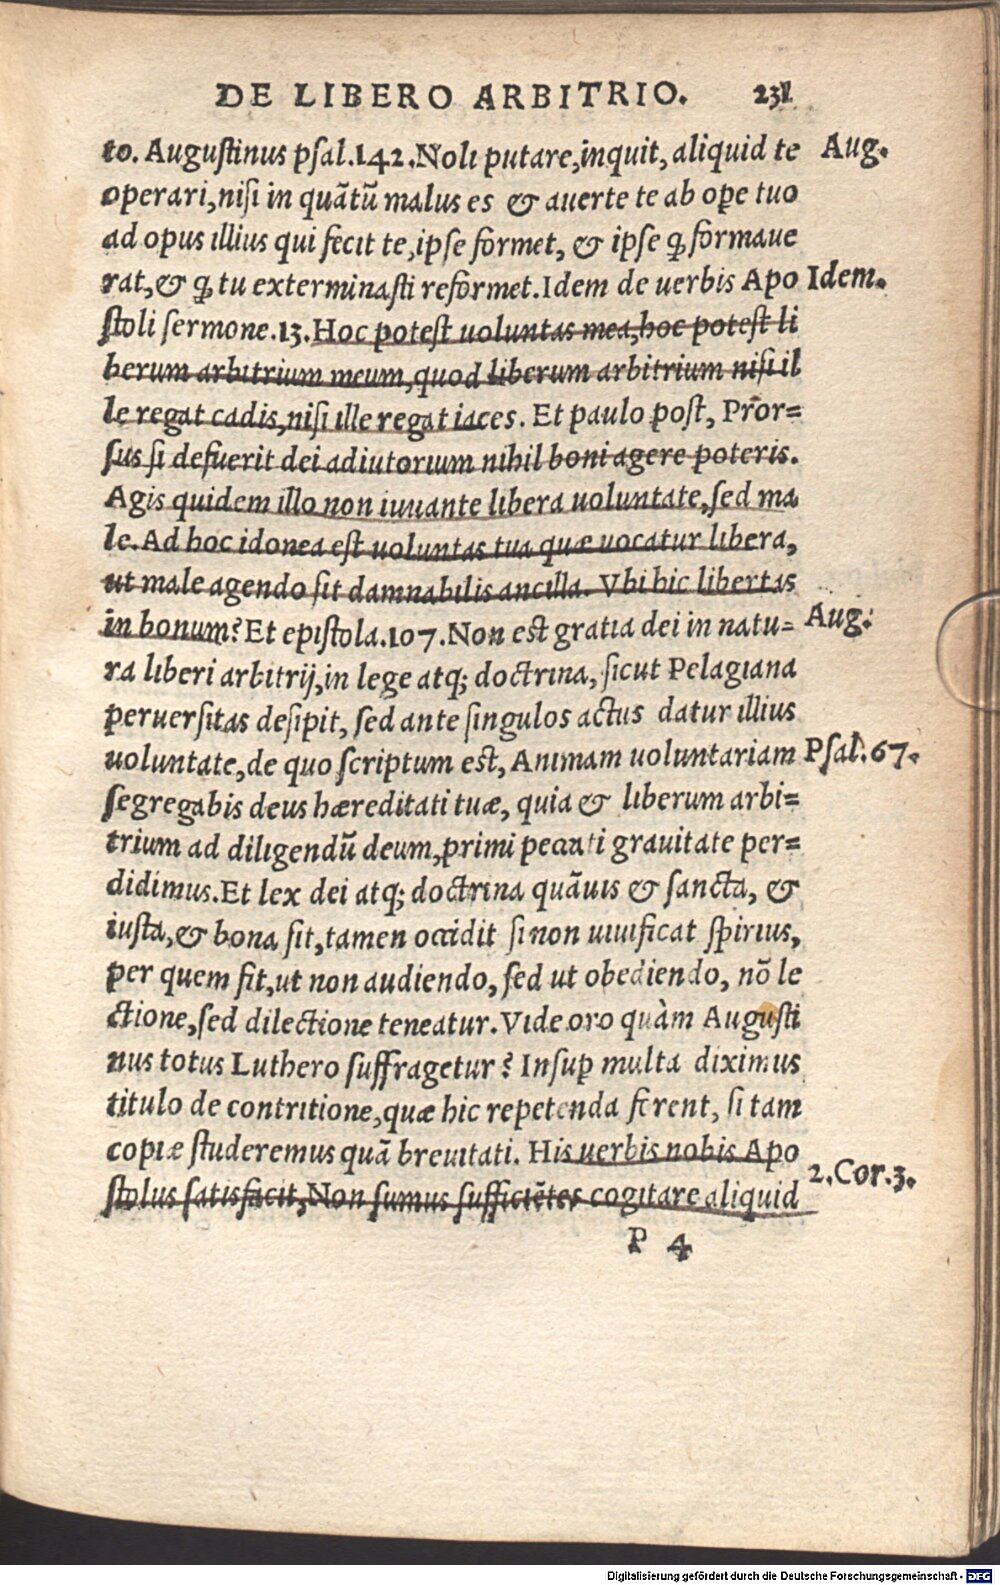 DE LIBERO ARBITRIO. 231
to. Augustinus psal.142. Noli putare, inquit, aliquid te Aug.
operari, nisi in quãtũ malus es & auerte te ab ope tuo
ad opus illius qui fecit te, ipse formet, & ipse ꝙ formaue
rat, & ꝙ tu exterminasti reformet. Idem de uerbis Apo Idem.
stoli sermone.13. Hoc potest uoluntas mea, hoc potest li
berum arbitrium meum, quod liberum arbitrium nisi il
le regat cadis, nisi ille regat iaces. Et paulo post, Pror=
sus si defuerit dei adiutorium nihil boni agere poteris.
Agis quidem illo non iuuante libera uoluntate, sed ma
le. Ad hoc idonea est uoluntas tua quæ uocatur libera,
ut male agendo sit damnabilis ancilla. Vbi hic libertas
in bonum? Et epistola.107. Non est gratia dei in natu= Aug:
ra liberi arbitrij, in lege atq; doctrina, sicut Pelagiana
peruersitas desipit, sed ante singulos actus datur illius
uoluntate, de quo scriptum est, Animam uoluntariam Psal.67.
segregabis deus hæreditati tuæ, quia & liberum arbi=
trium ad diligendũ deum, primi peccati grauitate per=
didimus. Et lex dei atq; doctrina quãuis & sancta, &
iusta, & bona sit, tamen occidit si non uiuificat spirius,
per quem fit, ut non audiendo, sed ut obediendo, nõ le
ctione, sed dilectione teneatur. Vide oro quàm Augusti
nus totus Luthero suffragetur? Insup multa diximus
titulo de contritione, quæ hic repetenda forent, si tam
copiæ studeremus quã breuitati. His uerbis nobis Apo
stolus satisfacit, Non sumus sufficiẽtes cogitare aliquid 2.Cor.3.
P 4
Digitalisierung gefördert durch die Deutsche Forschungsgemeinschaft - DFG